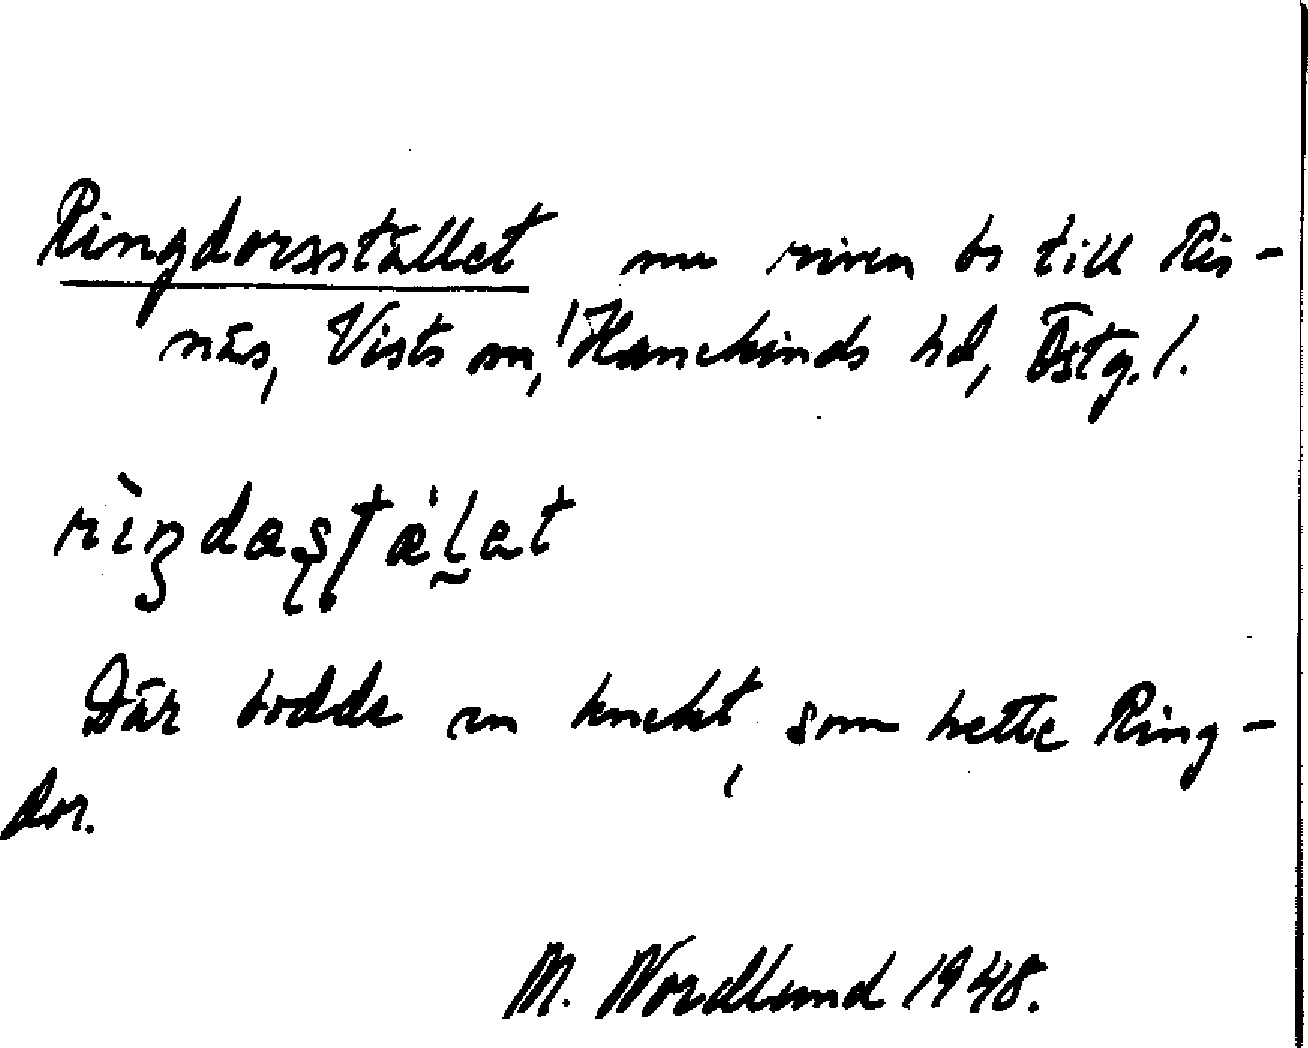 Ringdorsstället nu riven bs till Ris-
näs, Vists sn, Hanekinds hd, Östg. l.
rìŋdaʂʈæ̀l̰at
Där bodde en knekt, som hette Ring-
dor.
M. Nordlund 1948.